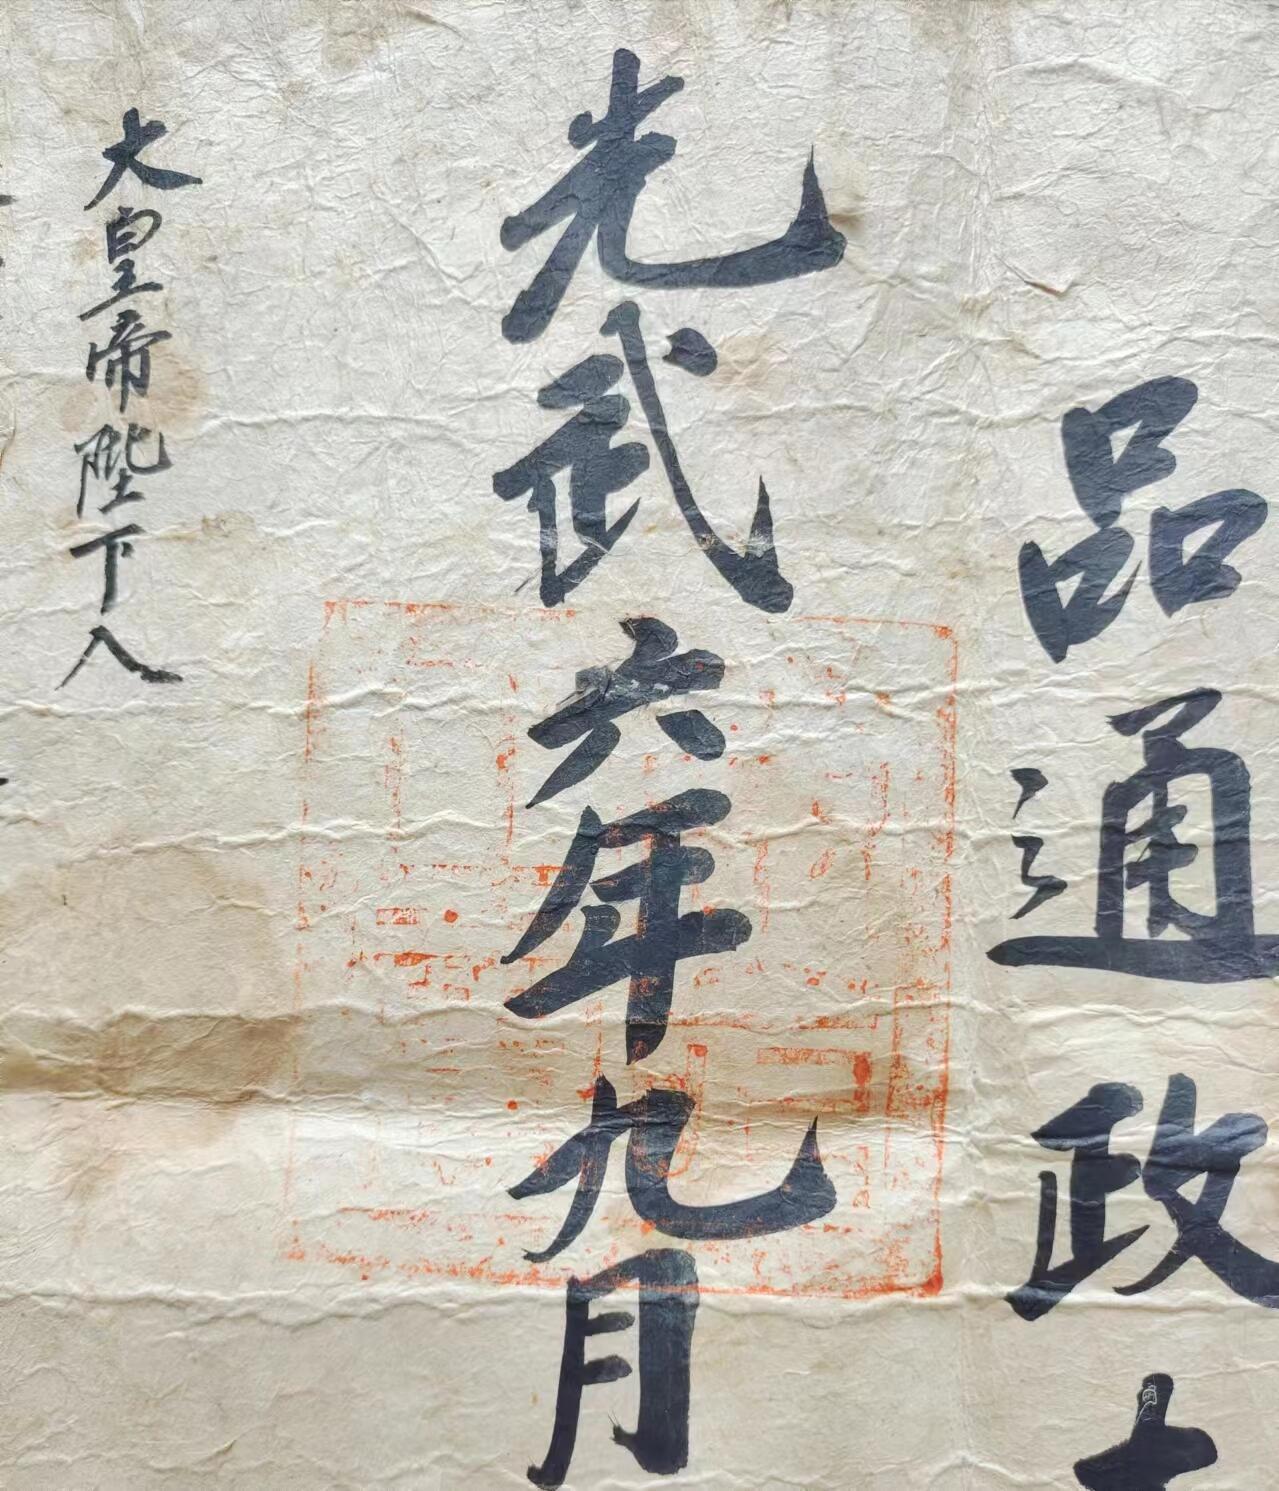 品通政大
光武六年九月
大皇帝陛下入